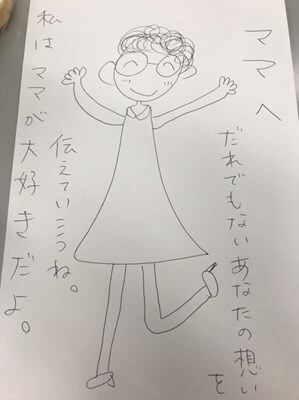 ママへ
だれでもないあなたの想いを
伝えていこうね。
私はママが大好きだよ。